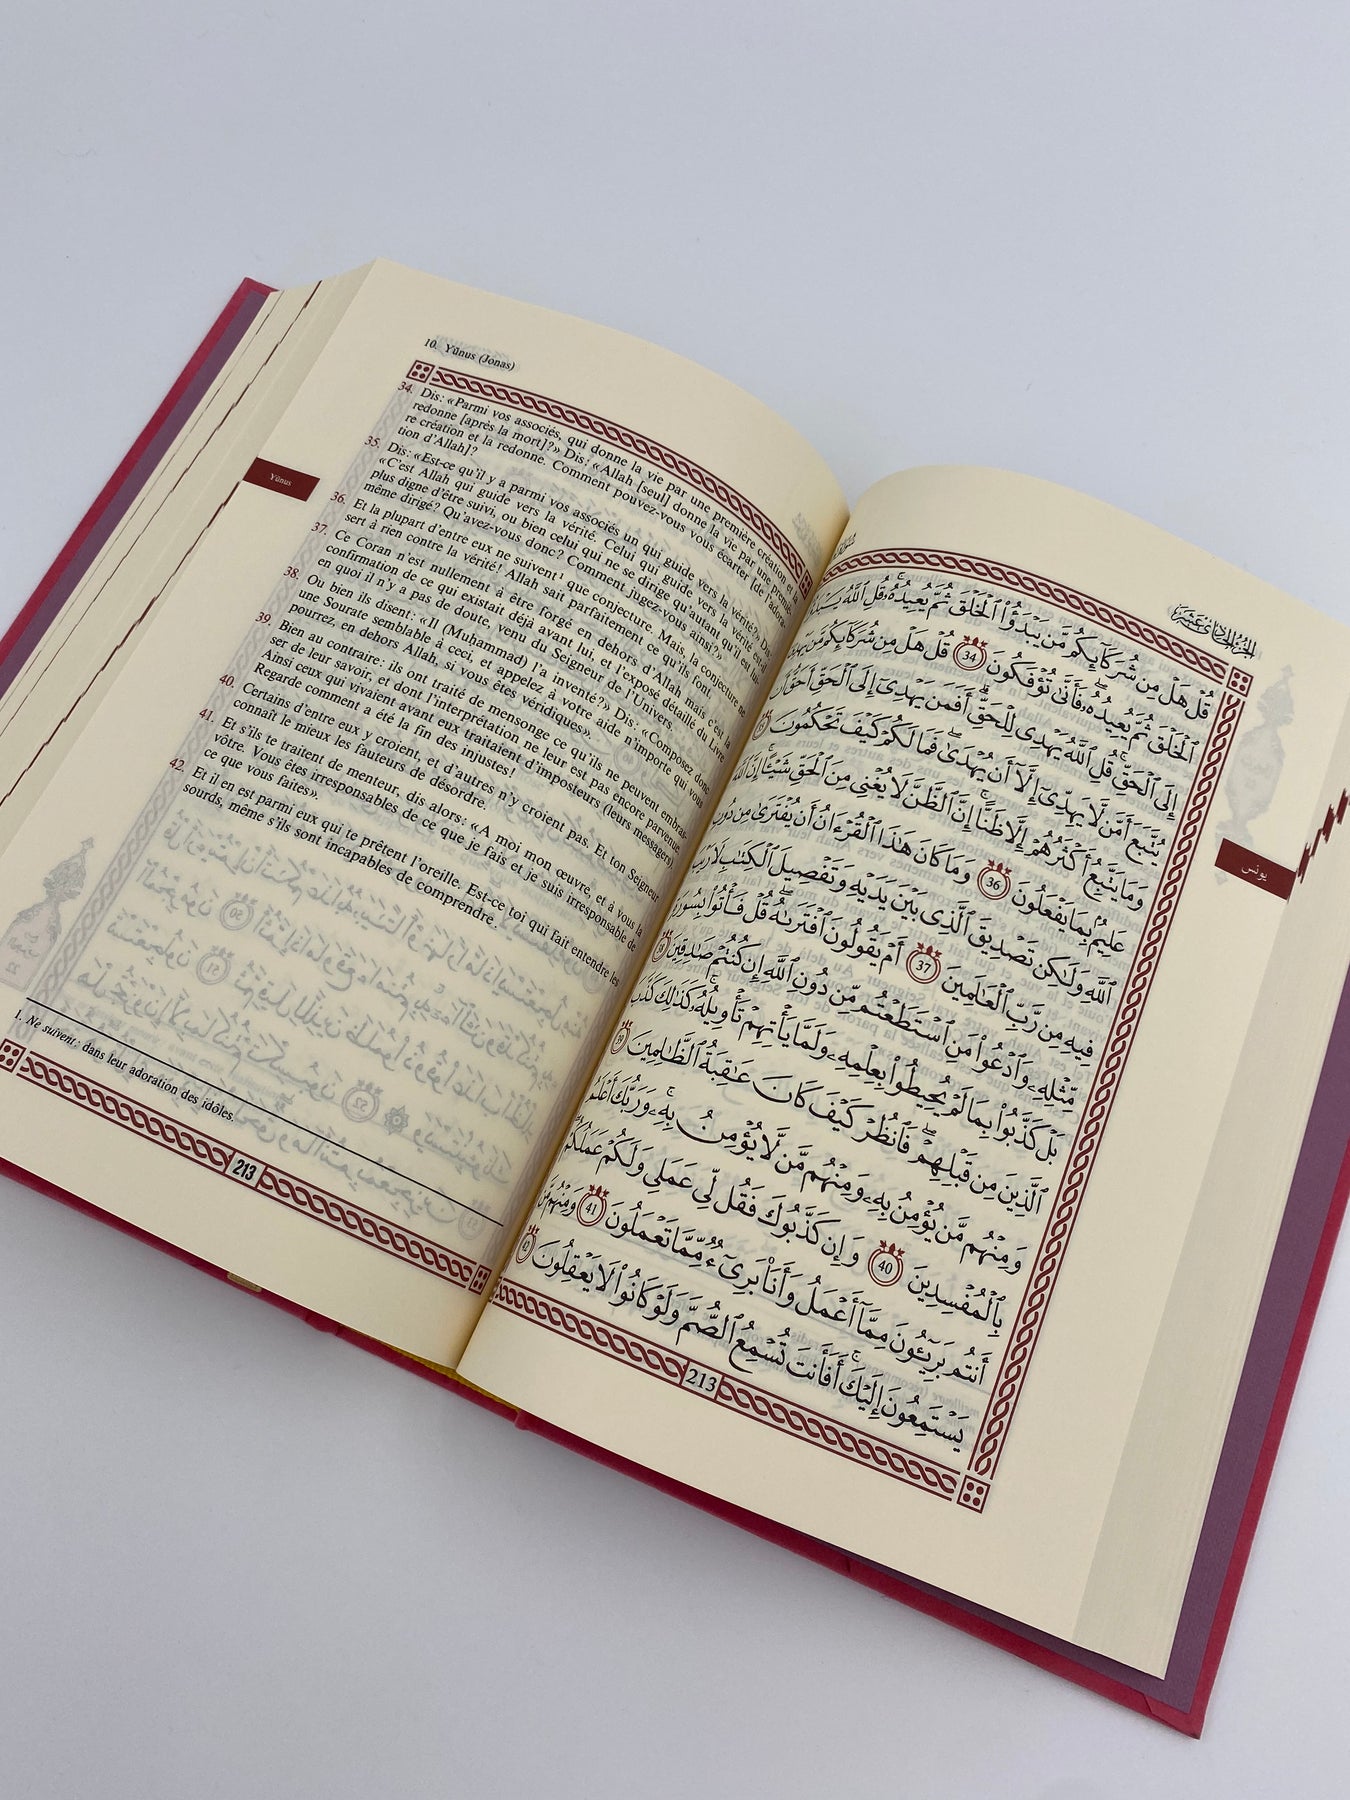 10. Yūnus (Jonas)
34. Dis: «Parmi vos associés, qui donne la vie par une première création et la
redonne [après la mort]?» Dis: «Allah [seul] donne la vie par une premiè-
re création et la redonne. Comment pouvez-vous vous écarter [de l'adora-
tion d'Allah]?
35. Dis: «Est-ce qu'il y a parmi vos associés un qui guide vers la vérité?» Dis:
«C'est Allah qui guide vers la vérité. Celui qui guide vers la vérité est-il
plus digne d'être suivi, ou bien celui qui ne se dirige qu'autant qu'il est lui-
même dirigé? Qu'avez-vous donc? Comment jugez-vous ainsi?»
36. Et la plupart d'entre eux ne suivent¹ que conjecture. Mais, la conjecture ne
sert à rien contre la vérité! Allah sait parfaitement ce qu'ils font.
37. Ce Coran n'est nullement à être forgé en dehors d'Allah mais c'est la
confirmation de ce qui existait déjà avant lui, et l'exposé détaillé du Livre
en quoi il n'y a pas de doute, venu du Seigneur de l'Univers.
38. Ou bien ils disent: «Il (Muhammad) l'a inventé?» Dis: «Composez donc
une Sourate semblable à ceci, et appelez à votre aide n'importe qui vous
pourrez, en dehors Allah, si vous êtes véridiques».
39. Bien au contraire: ils ont traité de mensonge ce qu'ils ne peuvent embras-
ser de leur savoir, et dont l'interprétation ne leur est pas encore parvenue.
Ainsi ceux qui vivaient avant eux traitaient d'imposteurs (leurs messagers).
Regarde comment a été la fin des injustes!
40. Certains d'entre eux y croient, et d'autres n'y croient pas. Et ton Seigneur
connaît le mieux les fauteurs de désordre.
41. Et s'ils te traitent de menteur, dis alors: «A moi mon œuvre, et à vous la
vôtre. Vous êtes irresponsables de ce que je fais et je suis irresponsable de
ce que vous faites».
42. Et il en est parmi eux qui te prêtent l'oreille. Est-ce toi qui fait entendre les
sourds, même s'ils sont incapables de comprendre.
1. Ne suivent: dans leur adoration des idôles.
213
Yūnus
الجزء الحادي عشر
قُلْ هَلْ مِن شُرَكَآئِكُم مَّن يَبْدَؤُا۟ ٱلْخَلْقَ ثُمَّ يُعِيدُهُۥ ۚ قُلِ ٱللَّهُ
ٱلْخَلْقَ ثُمَّ يُعِيدُهُۥ ۖ فَأَنَّىٰ تُؤْفَكُونَ 34 قُلْ هَلْ مِن شُرَكَآئِكُم مَّن
إِلَى ٱلْحَقِّ ۚ قُلِ ٱللَّهُ يَهْدِى لِلْحَقِّ ۗ أَفَمَن يَهْدِىٓ إِلَى ٱلْحَقِّ أَحَقُّ أَن
يُتَّبَعَ أَمَّن لَّا يَهِدِّىٓ إِلَّآ أَن يُهْدَىٰ ۖ فَمَا لَكُمْ كَيْفَ تَحْكُمُونَ 35
وَمَا يَتَّبِعُ أَكْثَرُهُمْ إِلَّا ظَنًّا ۚ إِنَّ ٱلظَّنَّ لَا يُغْنِى مِنَ ٱلْحَقِّ شَيْـًٔا ۚ إِنَّ ٱللَّهَ
عَلِيمٌۢ بِمَا يَفْعَلُونَ 36 وَمَا كَانَ هَٰذَا ٱلْقُرْءَانُ أَن يُفْتَرَىٰ مِن دُونِ
ٱللَّهِ وَلَٰكِن تَصْدِيقَ ٱلَّذِى بَيْنَ يَدَيْهِ وَتَفْصِيلَ ٱلْكِتَٰبِ لَا رَيْبَ
فِيهِ مِن رَّبِّ ٱلْعَٰلَمِينَ 37 أَمْ يَقُولُونَ ٱفْتَرَىٰهُ ۖ قُلْ فَأْتُوا۟ بِسُورَةٍ
مِّثْلِهِۦ وَٱدْعُوا۟ مَنِ ٱسْتَطَعْتُم مِّن دُونِ ٱللَّهِ إِن كُنتُمْ صَٰدِقِينَ 38
بَلْ كَذَّبُوا۟ بِمَا لَمْ يُحِيطُوا۟ بِعِلْمِهِۦ وَلَمَّا يَأْتِهِمْ تَأْوِيلُهُۥ ۚ كَذَٰلِكَ كَذَّبَ
ٱلَّذِينَ مِن قَبْلِهِمْ ۖ فَٱنظُرْ كَيْفَ كَانَ عَٰقِبَةُ ٱلظَّٰلِمِينَ 39
وَمِنْهُم مَّن يُؤْمِنُ بِهِۦ وَمِنْهُم مَّن لَّا يُؤْمِنُ بِهِۦ ۚ وَرَبُّكَ أَعْلَمُ
بِٱلْمُفْسِدِينَ 40 وَإِن كَذَّبُوكَ فَقُل لِّى عَمَلِى وَلَكُمْ عَمَلُكُمْ ۖ
أَنتُم بَرِيٓـُٔونَ مِمَّآ أَعْمَلُ وَأَنَا۠ بَرِىٓءٌ مِّمَّا تَعْمَلُونَ 41 وَمِنْهُم مَّن
يَسْتَمِعُونَ إِلَيْكَ ۚ أَفَأَنتَ تُسْمِعُ ٱلصُّمَّ وَلَوْ كَانُوا۟ لَا يَعْقِلُونَ 42
213
يونس